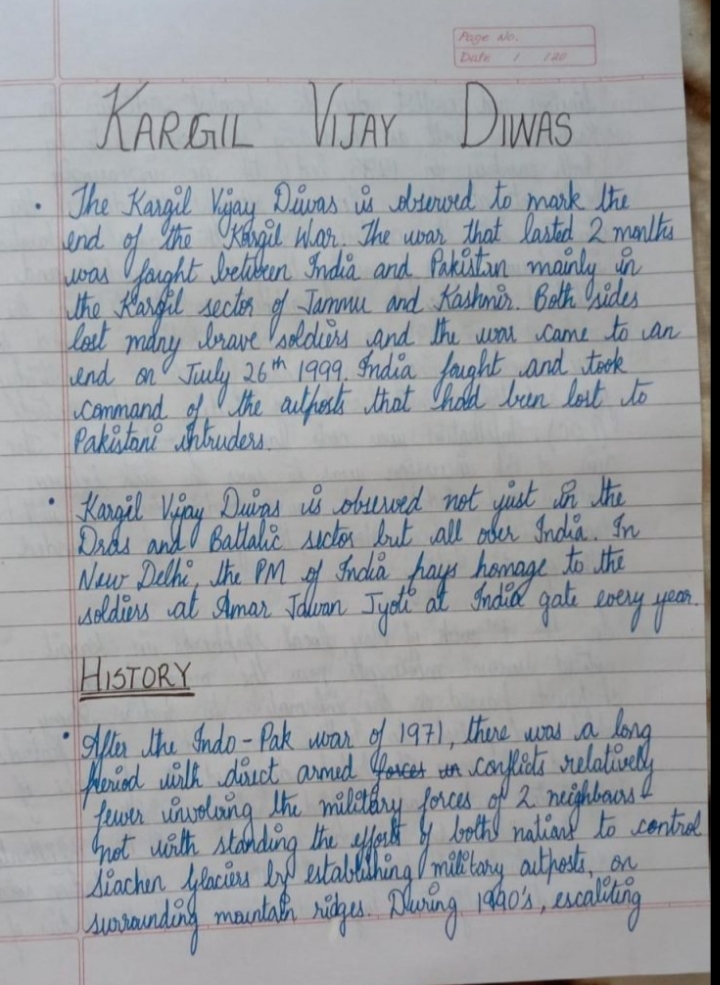 Page No.
Date / /20
KARGIL VIJAY DIWAS
• The Kargil Vijay Diwas is observed to mark the
end of the Kargil War. The war that lasted 2 months
was fought between India and Pakistan mainly in
the Kargil sector of Jammu and Kashmir. Both sides
lost many brave soldiers and the war came to an
end on Juuly 26th 1999. India fought and took
command of the outposts that had been lost to
Pakistani intruders.
• Kargil Vijay Diwas is observed not just in the
Dras and Battalic sector but all over India. In
New Delhi, the PM of India pays homage to the
soldiers at Amar Jawan Jyoti at India gate every year.
HISTORY
• After the Indo-Pak war of 1971, there was a long
period with direct armed forces in conflicts relatively
fewer involving the military forces of 2 neighbours -
not with standing the efforts of both nations to control
Siachen Glaciers by establishing military outposts, on
surrounding mountain ridges. During 1990's, escaliting